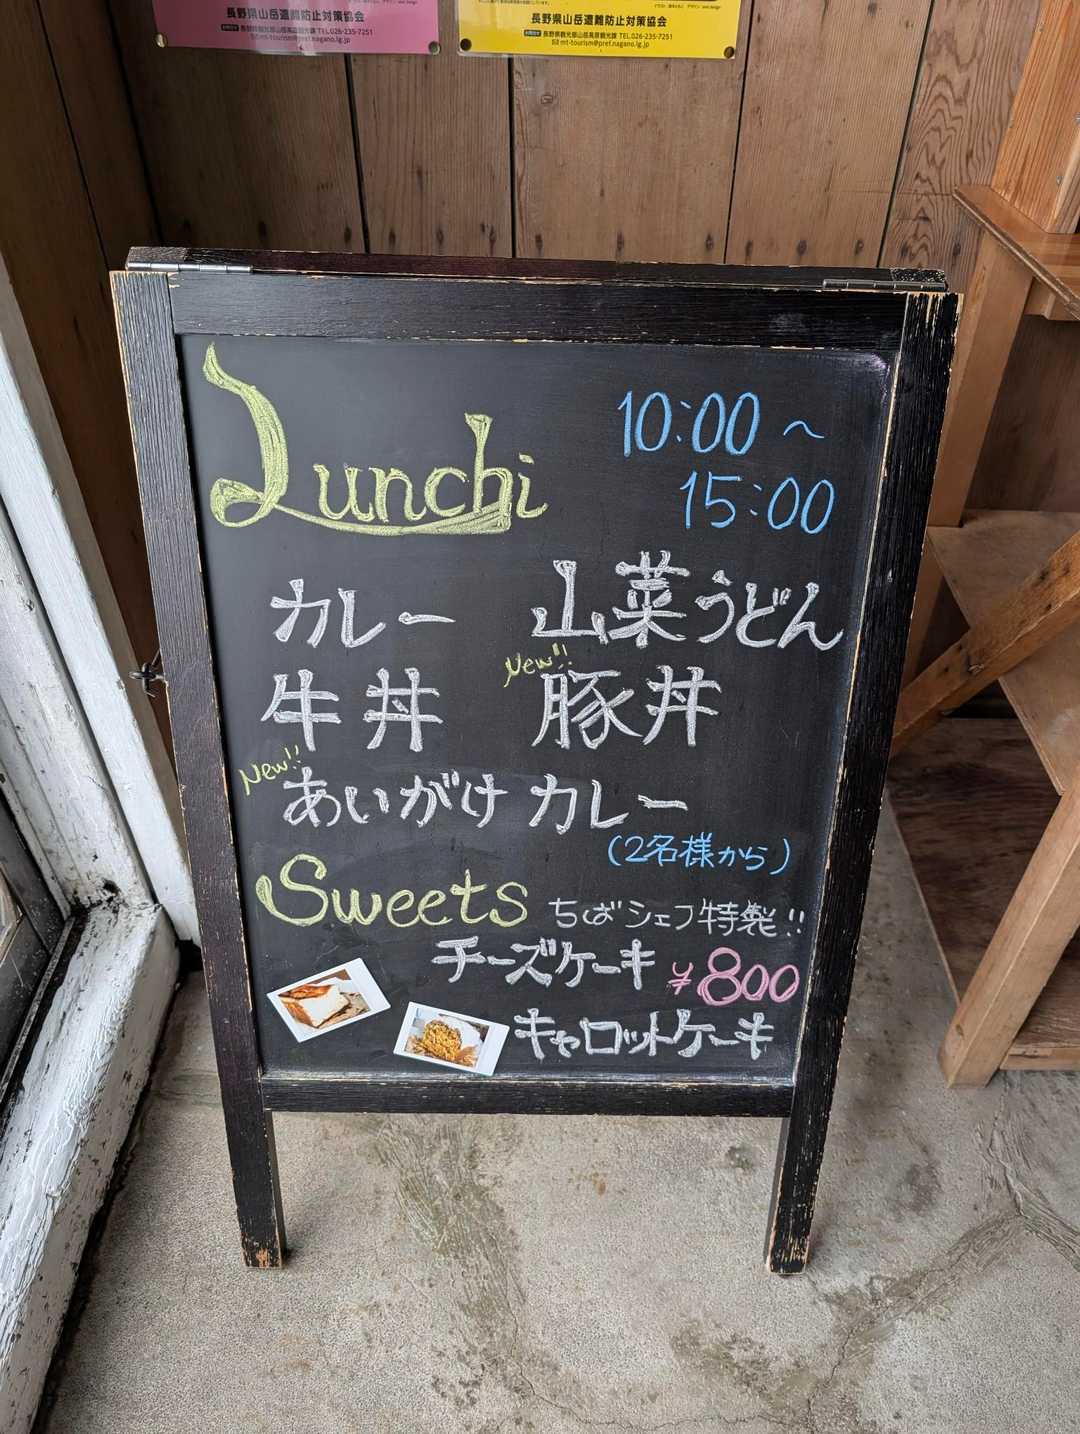 長野県山岳遭難防止対策協会
長野県観光部山岳高原観光課 TEL.026-235-7251
mt-tourism@pref.nagano.lg.jp
長野県山岳遭難防止対策協会
長野県観光部山岳高原観光課 TEL.026-235-7251
mt-tourism@pref.nagano.lg.jp
Lunchi
10:00～
15:00
カレー 山菜うどん
牛丼 New!! 豚丼
New!! あいがけカレー
(2名様から)
Sweets ちばシェフ特製!!
チーズケーキ ¥800
キャロットケーキ